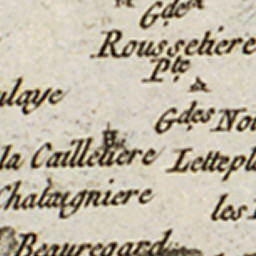 Gde
Roussetiere
Pte
ulaye
Gdes Nou
la Cailletiere
Lettepl
Chataigniere
les
Beauregard